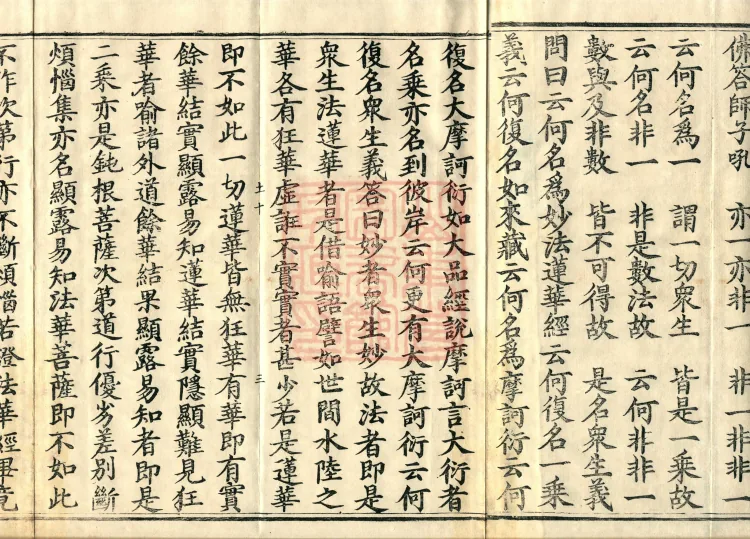 佛答師子吼　亦一亦非一　非一非非一
云何名為一　謂一切衆生　皆是一乘故
云何名非一　非是數法故　云何非非一
數與及非數　皆不可得故　是名衆生義
問曰云何名為妙法蓮華經云何復名一乘
義云何復名如來藏云何名為摩訶衍云何
復名大摩訶衍如大品經說摩訶言大衍者
名乘亦名到彼岸云何更有大摩訶衍云何
復名衆生義答曰妙者衆生妙故法者即是
衆生法蓮華者是借喻語譬如世間水陸之
華各有狂華虛誑不實實者甚少若是蓮華
即不如此一切蓮華皆無狂華有華即有實
餘華結實顯露易知蓮華結實隱顯難見狂
華者喻諸外道餘華結果顯露易知者即是
二乘亦是鈍根菩薩次第道行優劣差別斷
煩惱集亦名顯露易知法華菩薩即不如此
不作次第行亦不斷煩惱若證法華經畢竟